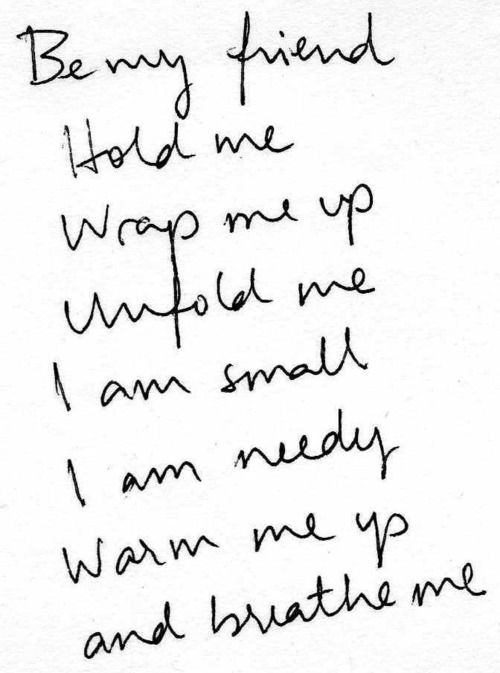 Be my friend
Hold me
Wrap me up
Unfold me
I am small
I am needy
Warm me up
and breathe me